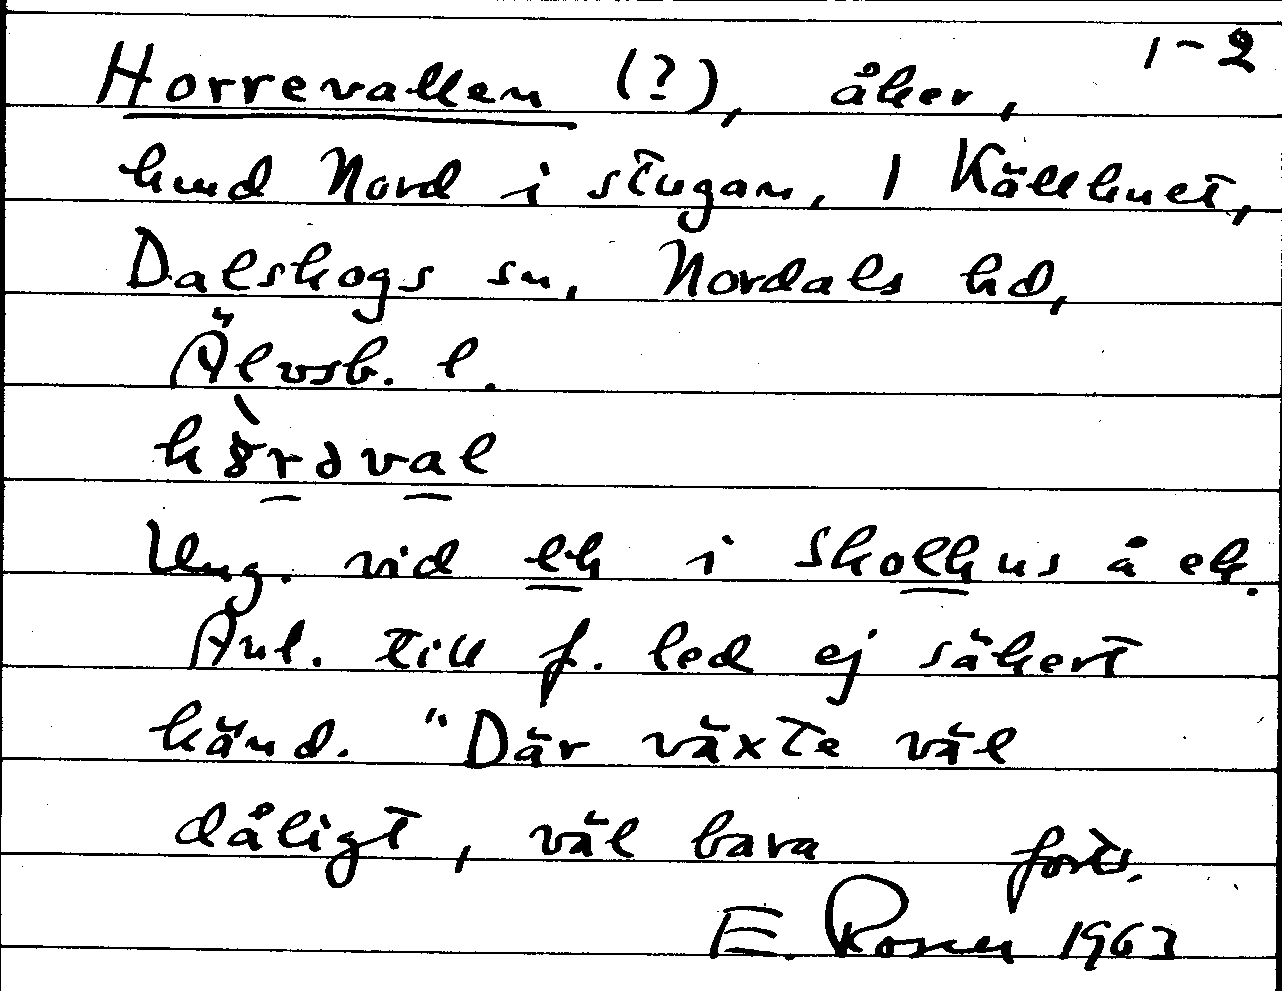 1-2
Horrevallen (?), åker,
hmd Nord i stugan, 1 Källhuet,
Dalskogs sn, Nordals hd,
Älvsb. l.
Ung. vid lh i Skolhus å ek.
Anl. till f. led ej säkert
känd. "Där växte väl
dåligt, väl bara forts.
E. Rosen 1963